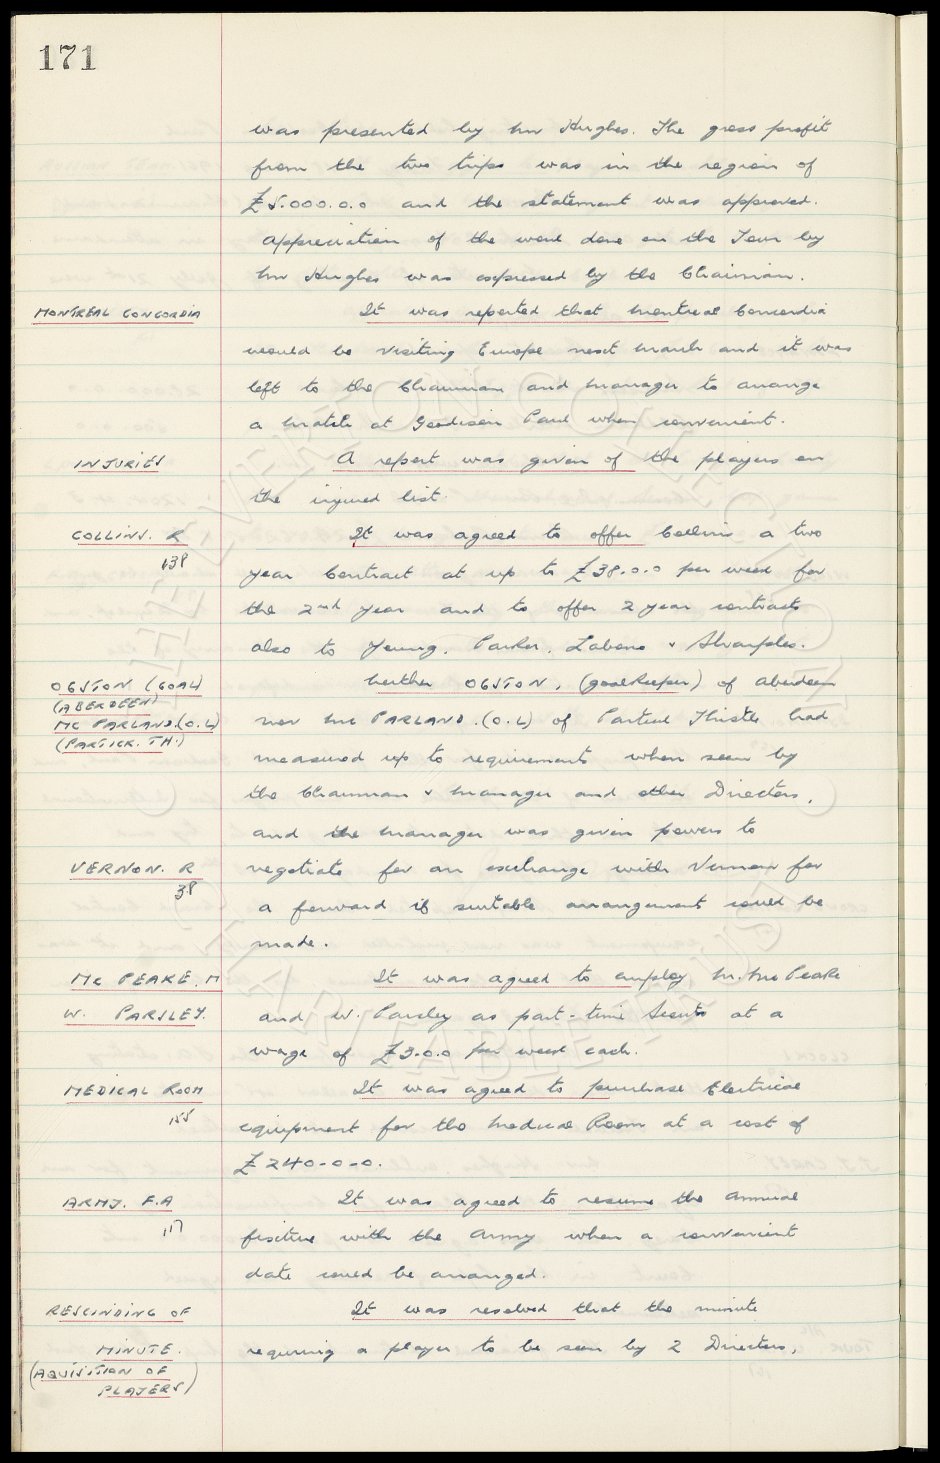 171
was presented by Mr Hughes. The gross profit
from the two trips was in the region of
£5.000.0.0 and the statement was approved.
Appreciation of the work done on the Tour by
Mr Hughes was expressed by the Chairman.
MONTREAL CONCORDIA It was reported that Montreal Concordia
would be visiting Europe next March and it was
left to the Chairman and Manager to arrange
a match at Goodison Park when convenient.
INJURIES A report was given of the players on
the injured list.
COLLINS. R It was agreed to offer Collins a two
138 year Contract at up to £38.0.0 per week for
the 2nd year and to offer 2 year contracts
also to Young, Parker, Labone & Sharples.
OGSTON (GOAL) Neither OGSTON, (goalkeeper) of Aberdeen
(ABERDEEN)
MC PARLAND.(O.L) nor Mc PARLAND.(O.L) of Partick Thistle had
(PARTICK. TH.)
measured up to requirements when seen by
the Chairman & Manager and other Directors,
and the Manager was given powers to
VERNON. R negotiate for an exchange with Vernon for
38 a forward if suitable arrangements could be
made.
Mc PEAKE. M It was agreed to employ M. Mc Peake
W. PARSLEY. and W. Parsley as part-time Scouts at a
wage of £3.0.0 per week each.
MEDICAL ROOM It was agreed to purchase Electrical
155 equipment for the Medical Room at a cost of
£240-0-0.
ARMY. F.A It was agreed to resume the annual
117 fixture with the Army when a convenient
date could be arranged.
RESCINDING OF It was resolved that the minute
MINUTE. requiring a player to be seen by 2 Directors,
(AQUISITION OF
PLAYERS)
THE EVERTON COLLECTION
CHARITABLE TRUST